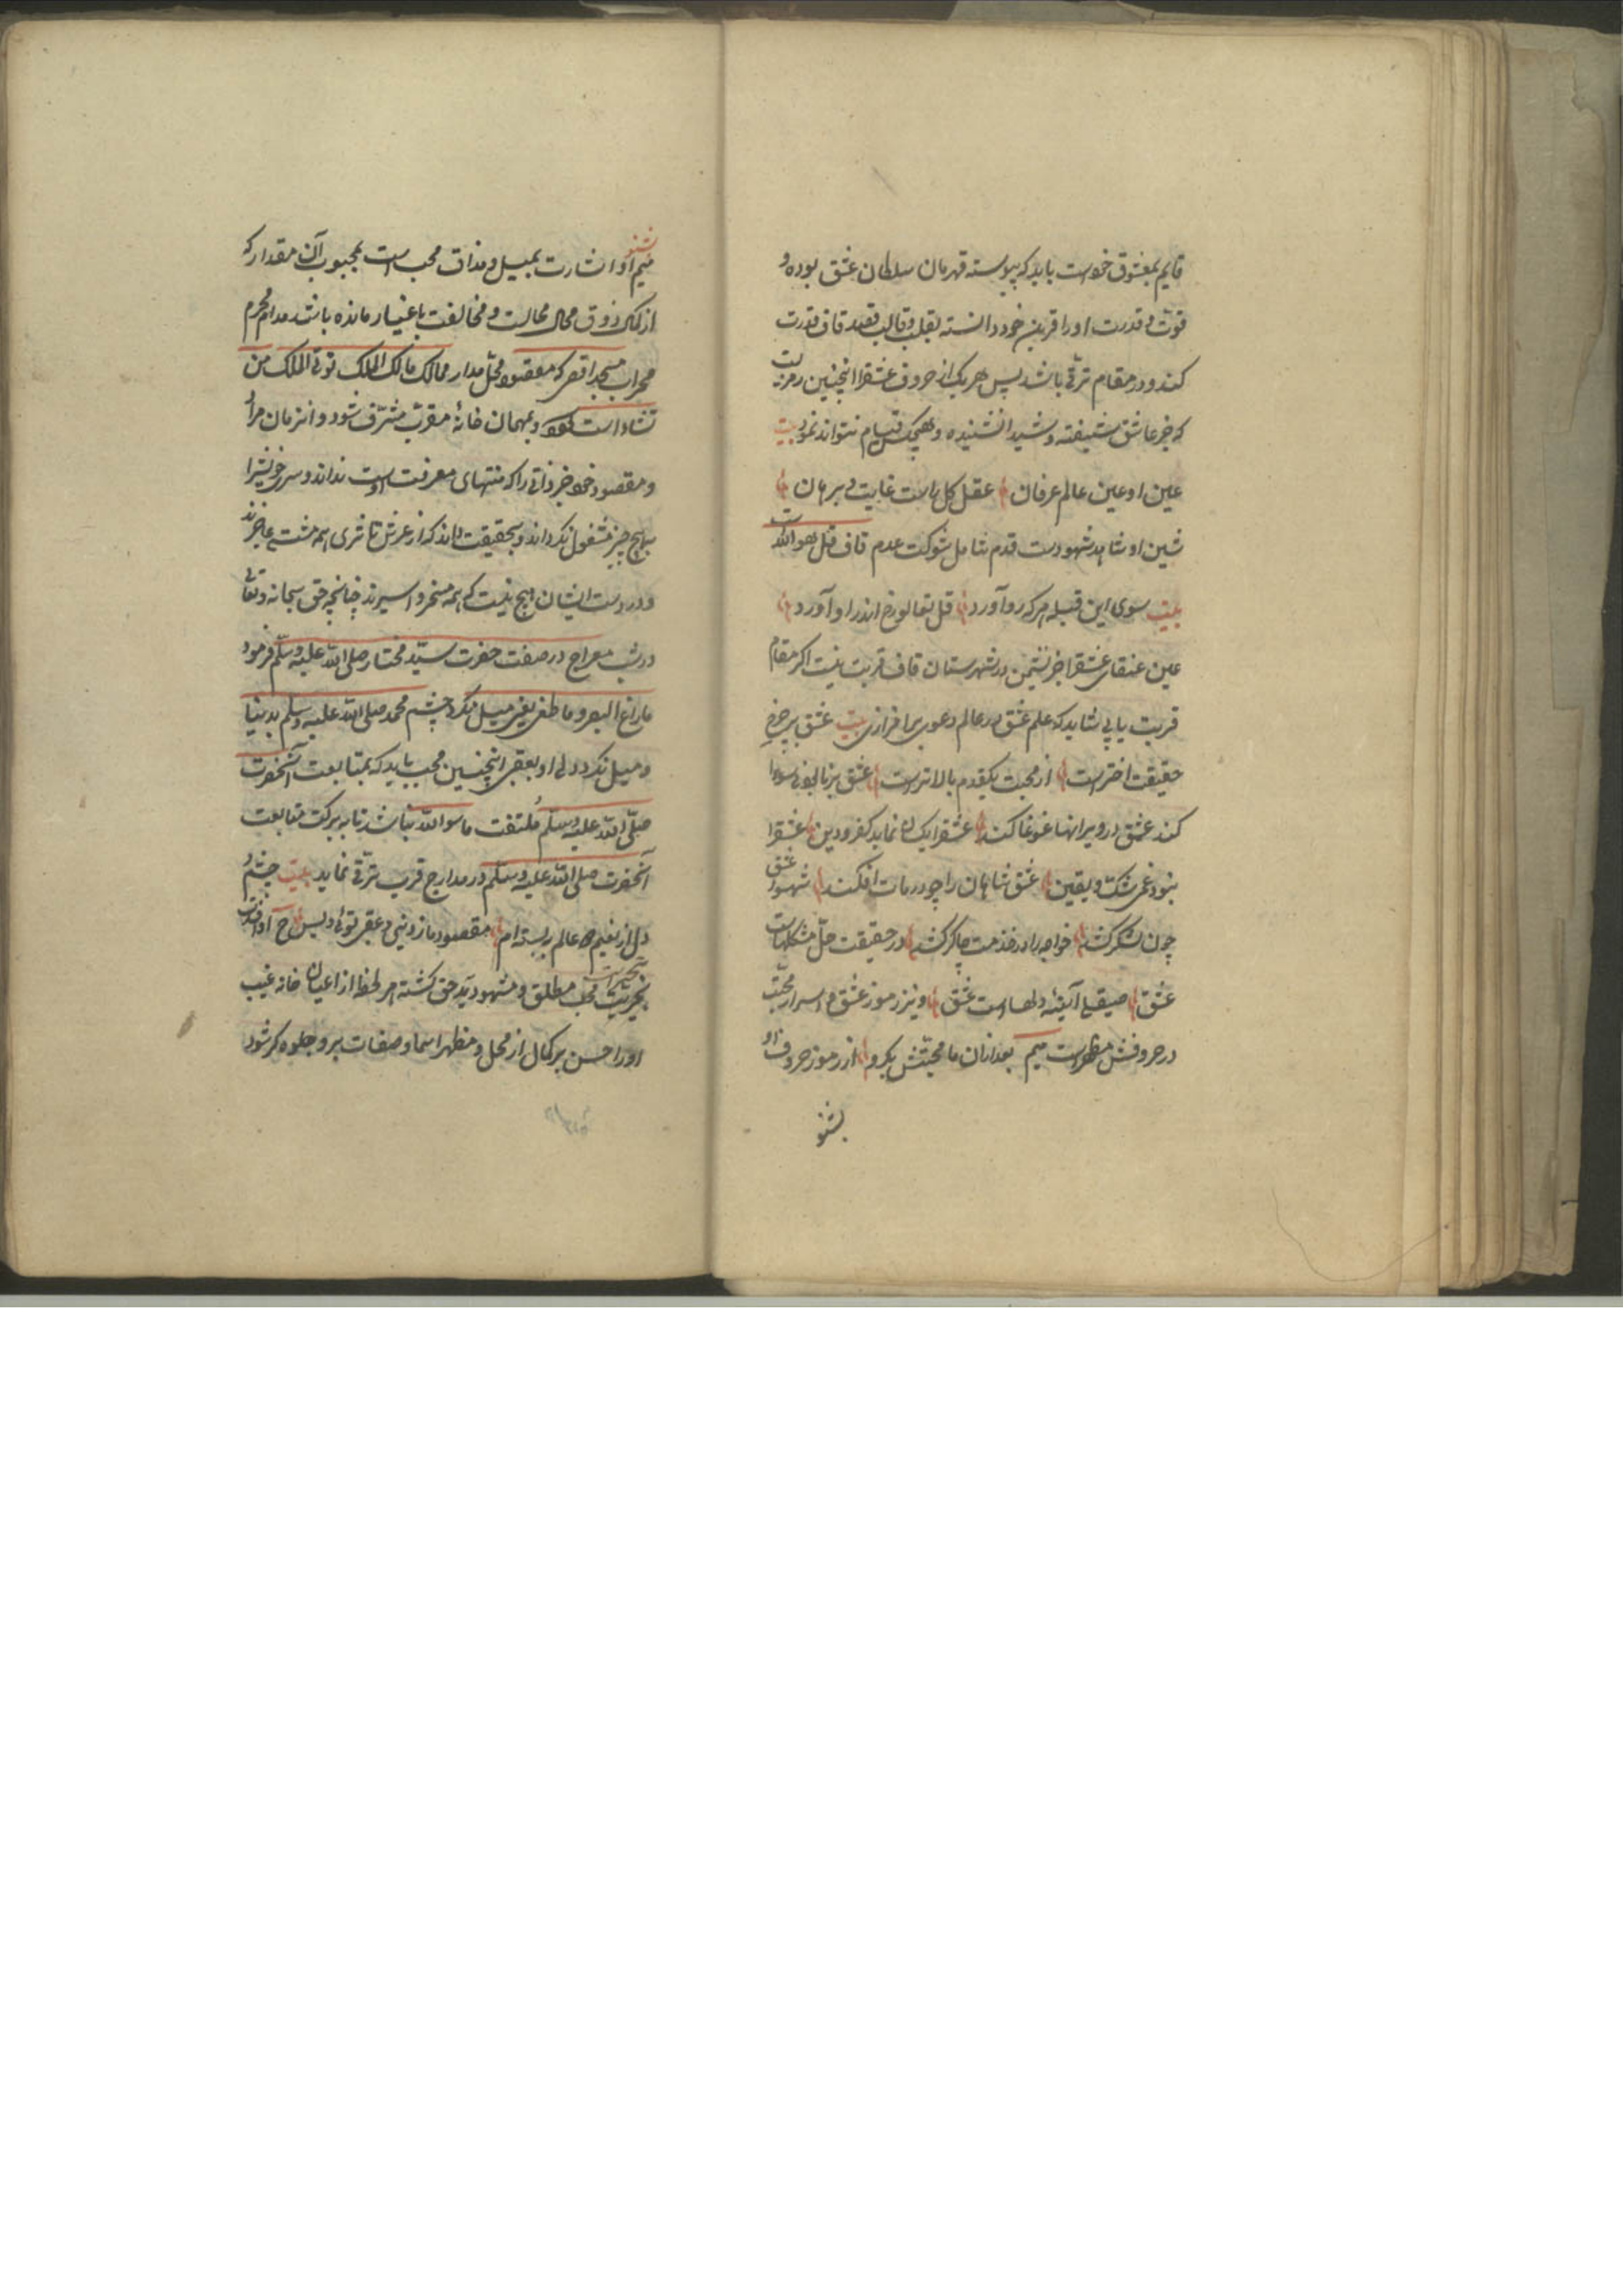 قایم بمعشوق خودست باید که پیوسته قهرمان سلطان عشق بوده و
قوت و قدرت او را قرین خود دانسته بقلب و قالب قصد قاف قدرت
کند و در مقام ترقی باشد پس هر یک از حروف عشقرا اینچنین رمزیست
که جز عاشق شیفته و شیدا نشنیده و هیچکس قیام نتواند نمود بیت
عین او عین عالم عرفان عقل کل راست غایت و برهان
شین او شاهد شهودست قدم شامل شوکت عدم قاف قل هو الله است
بیت سوی این قبله هر که رو آورد قل تعالو رخ اندر او آورد
عین عنقای عشقرا جز نشیمن در شهرستان قاف قربت نیست اگر مقام
قربت یابی شاید که علم عشق در عالم دعوی برافرازی بیت عشق بر چرخ
حقیقت اخترست از محبت یکقدم بالاترست عشق
کند عشق در ویرانها غوغا کند عشقرا یکسان نماید کفر و دین عشقرا
نبود غم شک و یقین عشق شاهان را چو در مات افکند شهسوار عشق
چون لشکر کشد خواجه را در خدمت چاکر کشد در حقیقت حل مشکلهاست
عشق صیقلی آیینه دلهاست عشق و نیز رموز عشق و اسرار محبت
در حروفش مظهرست میم بعد ازان ما محبتش بکرو از رموز حروف او
بشنو
بشنو
میم او اشارت بمیل و مذاق محب است بمحبوب آن مقدار که
از کمال ذوق محال محالست و مخالفت باغیار مانده باشد مدام محرم
محراب مسجد اقصی که مقصود محل مدار ممالک مالک الملک توتی الملک من
تشاء است و بمهمان خانهٔ مقرب مشرف شود و انزمان مراد
و مقصود خود جز ذاتی را که منتهای معرفت اوست نداند و سر خویشرا
بهیچ چیز مشغول نکرداند و بحقیقت داند که از عرش تا ثری همه مشتی عاجزند
و در دست ایشان هیچ نیست که همه مسخر و اسیرند چنانچه حق سبحانه و تعالی
در شب معراج در صفت حضرت سید مختار صلی الله علیه وسلم فرمود
ما زاغ البصر و ما طغی یعنی میل نکرد چشم محمد صلی الله علیه وسلم بدنیا
و میل نکرد دل او بعقبی اینچنین محب باید که بمتابعت آنحضرت
صلی الله علیه وسلم ملتفت ماسوالله نباشد تا به برکت متابعت
آنحضرت صلی الله علیه وسلم در مدارج قرب ترقی نماید بیت چشم و
دل از نعیم دو عالم ببسته ام مقصود ما ز دنیی و عقبی توئی و بس ح او اشارت
محب مطلق و مشهود ید حق کشته هر لحظه از اعیان خانه غیب
او را حسن بر کمال از محل و مظهر اسما و صفات برو جلوه کر شود